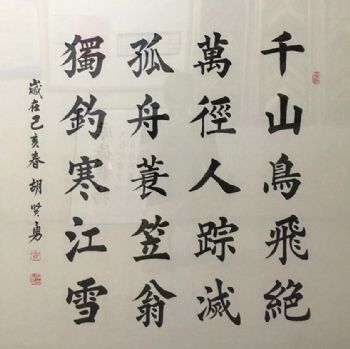 千山鳥飛絕
萬徑人踪滅
孤舟蓑笠翁
獨釣寒江雪
歲在己亥春 胡賢勇